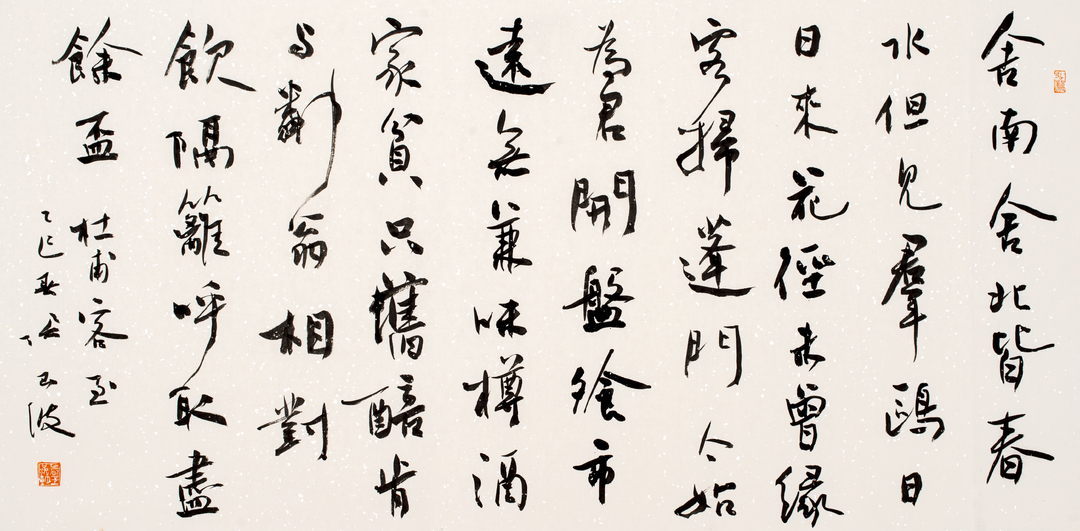 舍南舍北皆春
水但見羣鷗日
日來花徑未曾緣
客掃蓬門今始
為君開盤飧市
遠無兼味樽酒
家貧只舊醅肯
与鄰翁相對
飲隔籬呼取盡
餘盃
杜甫客至
乙巳玉波